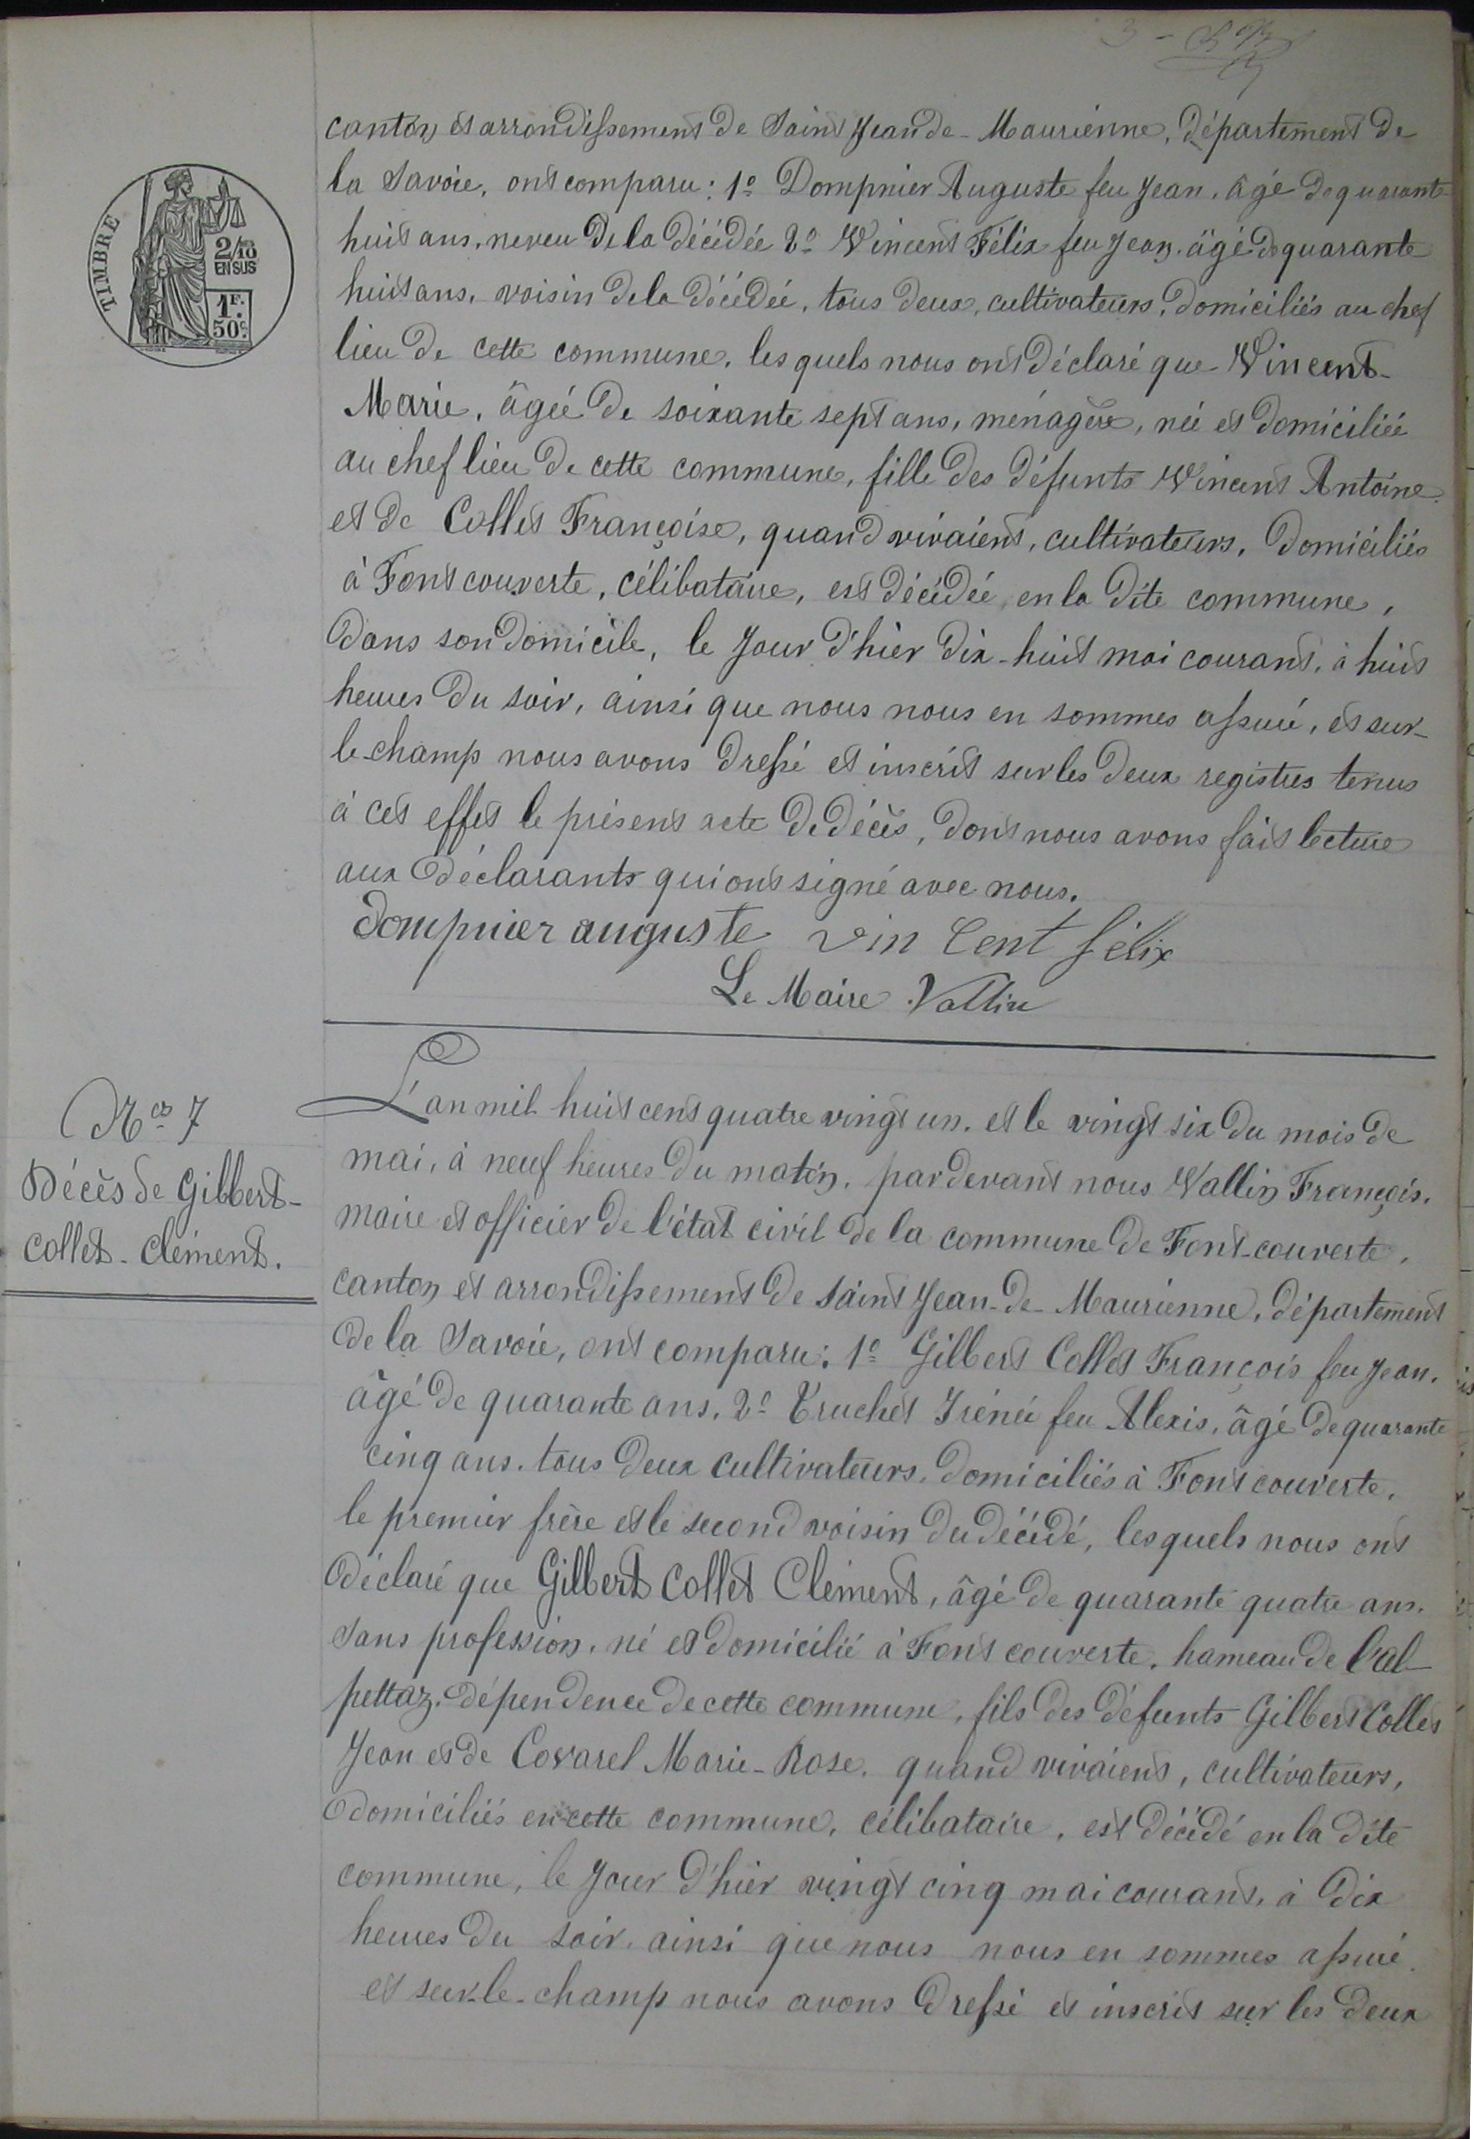 3 -
canton et arrondissement de Saint Jean de-Maurienne, département de
la Savoie, ont comparu : 1° Dompnier Auguste feu Jean, âgé de quarante-
huit ans, neveu de la décédée 2° Vincent Félix feu Jean, âgé de quarante
huit ans, voisin de la décédée, tous deux, cultivateurs, domiciliés au chef
lieu de cette commune, lesquels nous ont déclaré que Vincent-
Marie, âgée de soixante sept ans, ménagère, née et domiciliée
au chef lieu de cette commune, fille des défunts Vincent Antoine
et de Collet Françoise, quand vivaient, cultivateurs, domiciliés
à Font couverte, célibataire, est décédée en la dite commune,
dans son domicile, le jour d'hier dix-huit mai courant, à huit
heures du soir, ainsi que nous nous en sommes assuré, et sur-
le-champ nous avons dressé et inscrit sur les deux registres tenus
à cet effet le présent acte de décès, dont nous avons fait lecture
aux déclarants qui ont signé avec nous.
Dompnier auguste vin cent félix
Le Maire Vallin
TIMBRE
2/10
EN SUS
1F.
50c.
N° 7
Décès de Gilbert-
Collet-Clément.
L'an mil huit cent quatre vingt un, et le vingt six du mois de
mai, à neuf heures du matin, par devant nous Vallin François,
maire et officier de l'état civil de la commune de Font-couverte,
canton et arrondissement de Saint Jean-de-Maurienne, département
de la Savoie, ont comparu : 1° Gilbert Collet François feu Jean,
âgé de quarante ans, 2° Truchet Irénée feu Alexis, âgé de quarante
cinq ans, tous deux cultivateurs, domiciliés à Font couverte,
le premier frère et le second voisin du décédé, lesquels nous ont
déclaré que Gilbert Collet Clément, âgé de quarante quatre ans,
sans profession, né et domicilié à Font couverte, hameau de l'al-
pettaz, dépendence de cette commune, fils des défunts Gilbert Collet
Jean et de Covarel Marie-Rose, quand vivaient, cultivateurs,
domiciliés en cette commune, célibataire, est décédé en la dite
commune, le jour d'hier vingt cinq mai courant, à dix
heures du soir, ainsi que nous nous en sommes assuré,
et sur-le-champ nous avons dressé et inscrit sur les deux